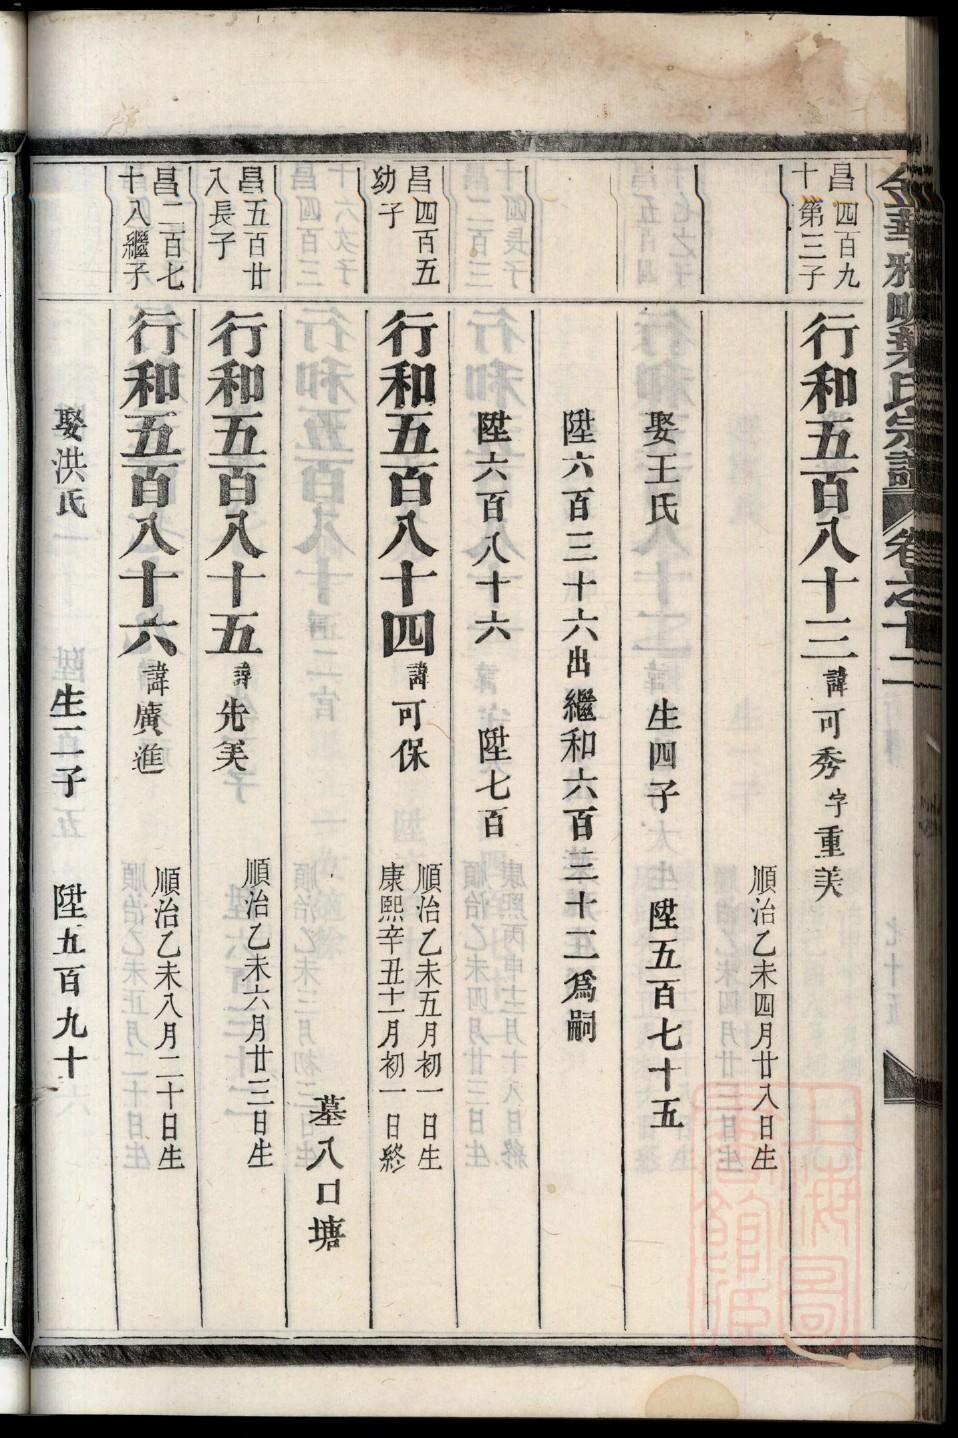 金華雅畈葉氏宗譜 卷之十二
昌四百九
十第三子
行和五百八十三 諱可秀 字重美
順治乙未四月廿八日生
娶王氏 生四子 陞五百七十五
陞六百三十六出繼和六百三十三為嗣
陞六百八十六 陞七百
昌四百五
幼子
行和五百八十四 諱可保
順治乙未五月初一日生
康熙辛丑十一月初一日終
墓八口塘
昌五百廿
八長子
行和五百八十五 諱先美
順治乙未六月廿三日生
昌二百七
十八繼子
行和五百八十六 諱廣進
順治乙未八月二十日生
娶洪氏 生二子 陞五百九十